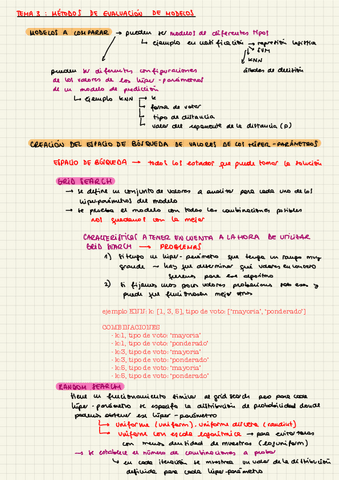 TEMA 3: MÉTODOS DE EVALUACIÓN DE MODELOS
MODELOS A COMPARAR → pueden ser modelos de diferentes tipos
↳ ejemplo en clasificación → regresión logística
↳ SVM
↳ KNN
árboles de decisión
pueden ser diferentes configuraciones
de los valores de los híper-parámetros
de un modelo de predicción
↳ ejemplo KNN → k
forma de votar
tipo de distancia
valor del exponente de la distancia (p)
CREACIÓN DEL ESPACIO DE BÚSQUEDA DE VALORES DE LOS HÍPER-PARÁMETROS
ESPACIO DE BÚSQUEDA → todos los estados que puede tomar la solución
GRID SEARCH
→ se define un conjunto de valores a analizar para cada uno de los
híperparámetros del modelo
→ se prueba el modelo con todas las combinaciones posibles
nos quedamos con la mejor
CARACTERÍSTICAS A TENER EN CUENTA A LA HORA DE UTILIZAR
GRID SEARCH → PROBLEMAS
1) si tengo un híper-parámetro que tenga un rango muy
grande → hay que determinar qué valores en concreto
generas para ese algoritmo
2) si fijamos unos pocos valores probaremos solo esos y
puede que funcionasen mejor otros
ejemplo KNN: k: [1, 3, 5], tipo de voto: ['mayoria', 'ponderado']
COMBINACIONES
· k:1, tipo de voto: 'mayoria'
· k:1, tipo de voto: 'ponderado'
· k:3, tipo de voto: 'mayoria'
· k:3, tipo de voto: 'ponderado'
· k:5, tipo de voto: 'mayoria'
· k:5, tipo de voto: 'ponderado'
RANDOM SEARCH
tiene un funcionamiento similar al grid search pero para cada
híper-parámetro se especifica la distribución de probabilidad desde
podemos obtener ese híper-parámetro
↳ uniforme (uniform), uniforme discreta (randint)
↳ uniforme con escala logarítmica → para evitar zonas
con menos densidad de muestras (loguniform)
→ se establece el número de combinaciones a probar
↳ en cada iteración, se muestrea un valor de la distribución
definida para cada híper-parámetro